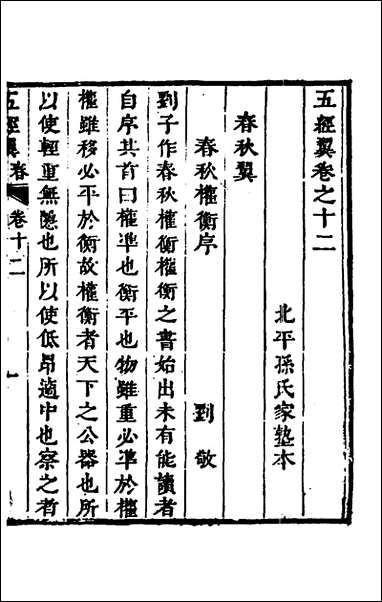 五經翼卷之十二
北平孫氏家塾本
春秋翼
春秋權衡序
劉敞
劉子作春秋權衡權衡之書始出未有能讀者
自序其首曰權準也衡平也物雖重必準於權
權雖移必平於衡故權衡者天下之公器也所
以使輕重無隱也所以使低昂適中也察之者
五經翼 春 卷十二 一